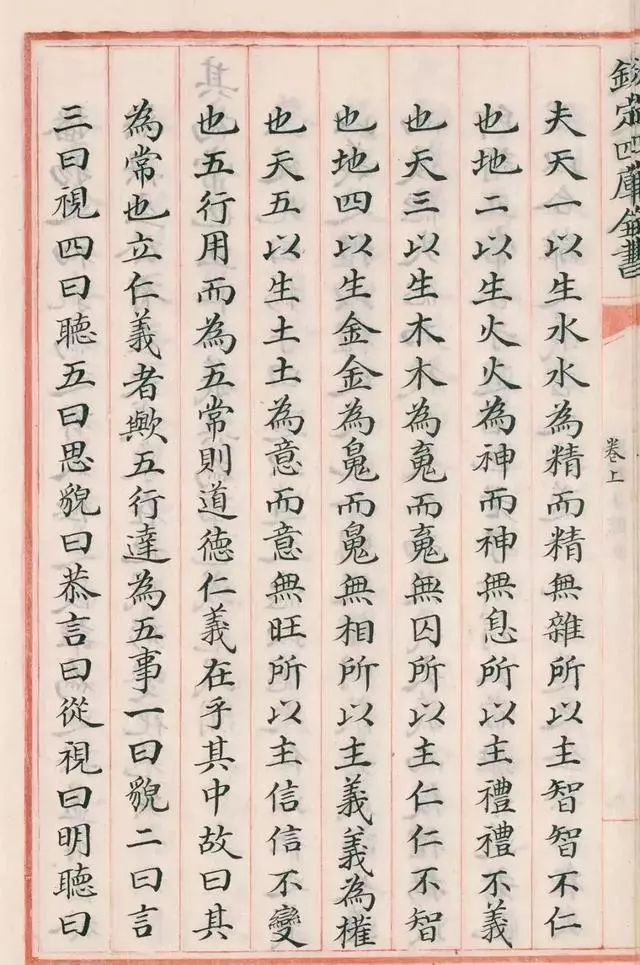 欽定四庫全書
卷上
夫天一以生水水為精而精無雜所以主智智不仁
也地二以生火火為神而神無息所以主禮禮不義
也天三以生木木為䰟而䰟無囚所以主仁仁不智
也地四以生金金為鬼而鬼無相所以主義義為權
也天五以生土土為意而意無旺所以主信信不變
也五行用而為五常則道德仁義在乎其中故曰其
為常也立仁義者歟五行達為五事一曰貌二曰言
三曰視四曰聽五曰思貌曰恭言曰從視曰明聽曰